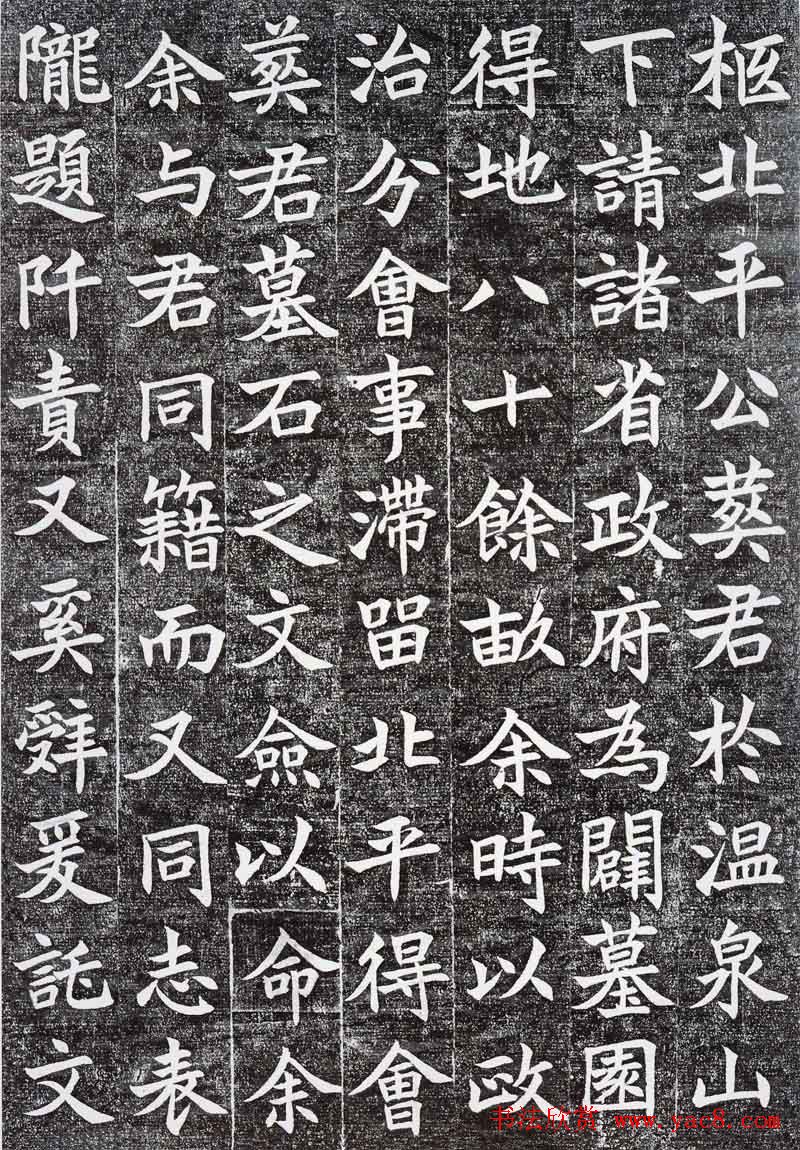 柩北平公葬君於温泉山
下請諸省政府為闢墓園
得地八十餘畝余時以政
治分會事滯留北平得會
葬君墓石之文僉以命余
余与君同籍而又同志表
隴題阡責又奚辭爰託文
书法欣赏 www.yac8.com